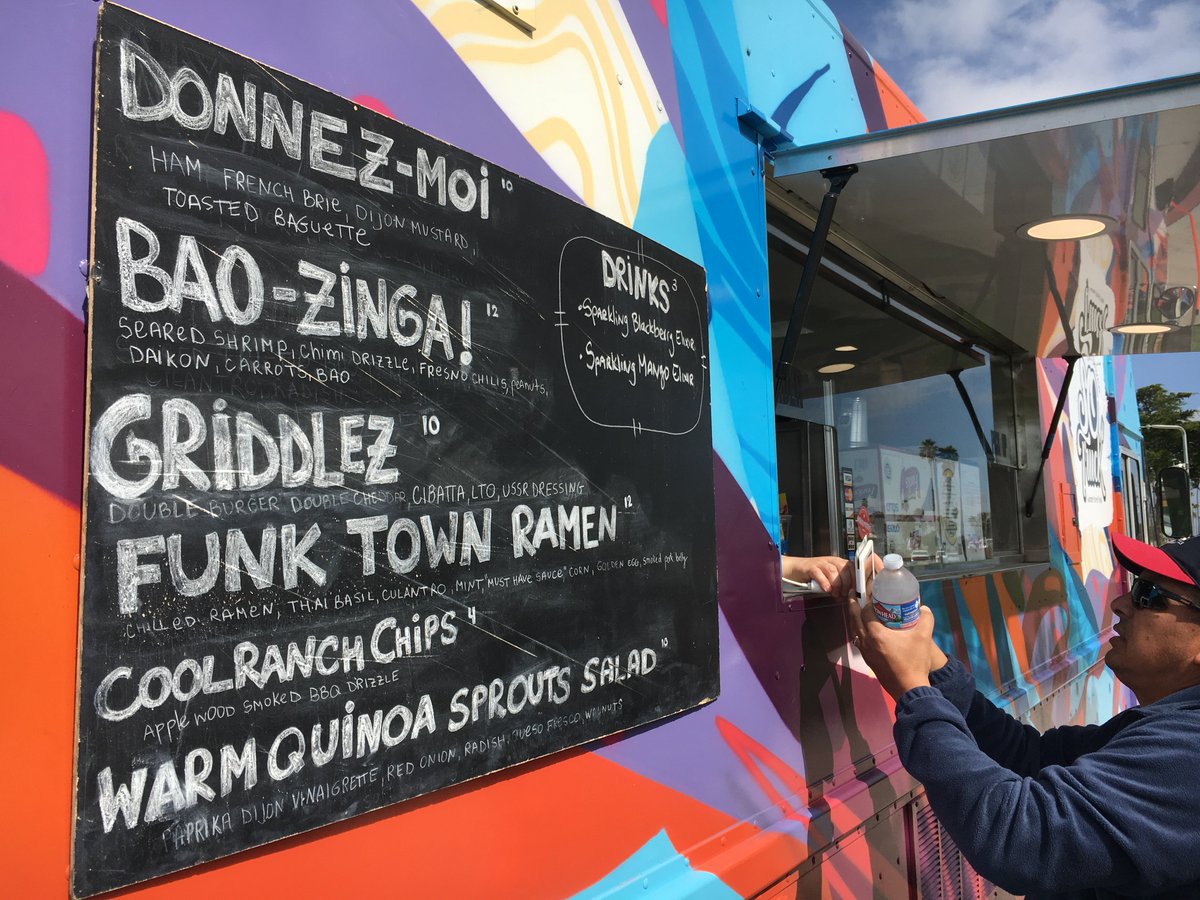 DONNEZ-MOI 10
HAM FRENCH BRIE, DIJON MUSTARD,
TOASTED BAGUETTE
BAO-ZINGA! 12
SEARED SHRIMP, CHIMI DRIZZLE, FRESNO CHILIS, PEANUTS,
DAIKON, CARROTS, BAO
GRIDDLEZ 10
DOUBLE BURGER DOUBLE CHEDDAR, CIBATTA, LTO, USSR DRESSING
FUNK TOWN RAMEN 12
CHILLED RAMEN, THAI BASIL, CULANTRO, MINT, "MUST HAVE SAUCE" CORN, GOLDEN EGG, smoked pork belly
COOL RANCH CHIPS 4
APPLE WOOD SMOKED BBQ DRIZZLE
WARM QUINOA SPROUTS SALAD 10
PAPRIKA DIJON VINAIGRETTE, RED ONION, RADISH, QUESO FRESCO, WALNUTS
DRINKS 3
• Sparkling Blackberry Elixir
• Sparkling Mango Elixir